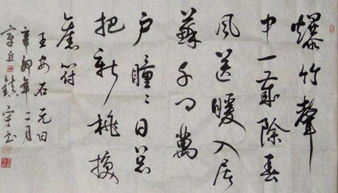 爆竹聲
中一歲除春
風送暖入屠
蘇千門萬
戶瞳々日總
把新桃換
舊符
王安石元日
辛卯年二月
書